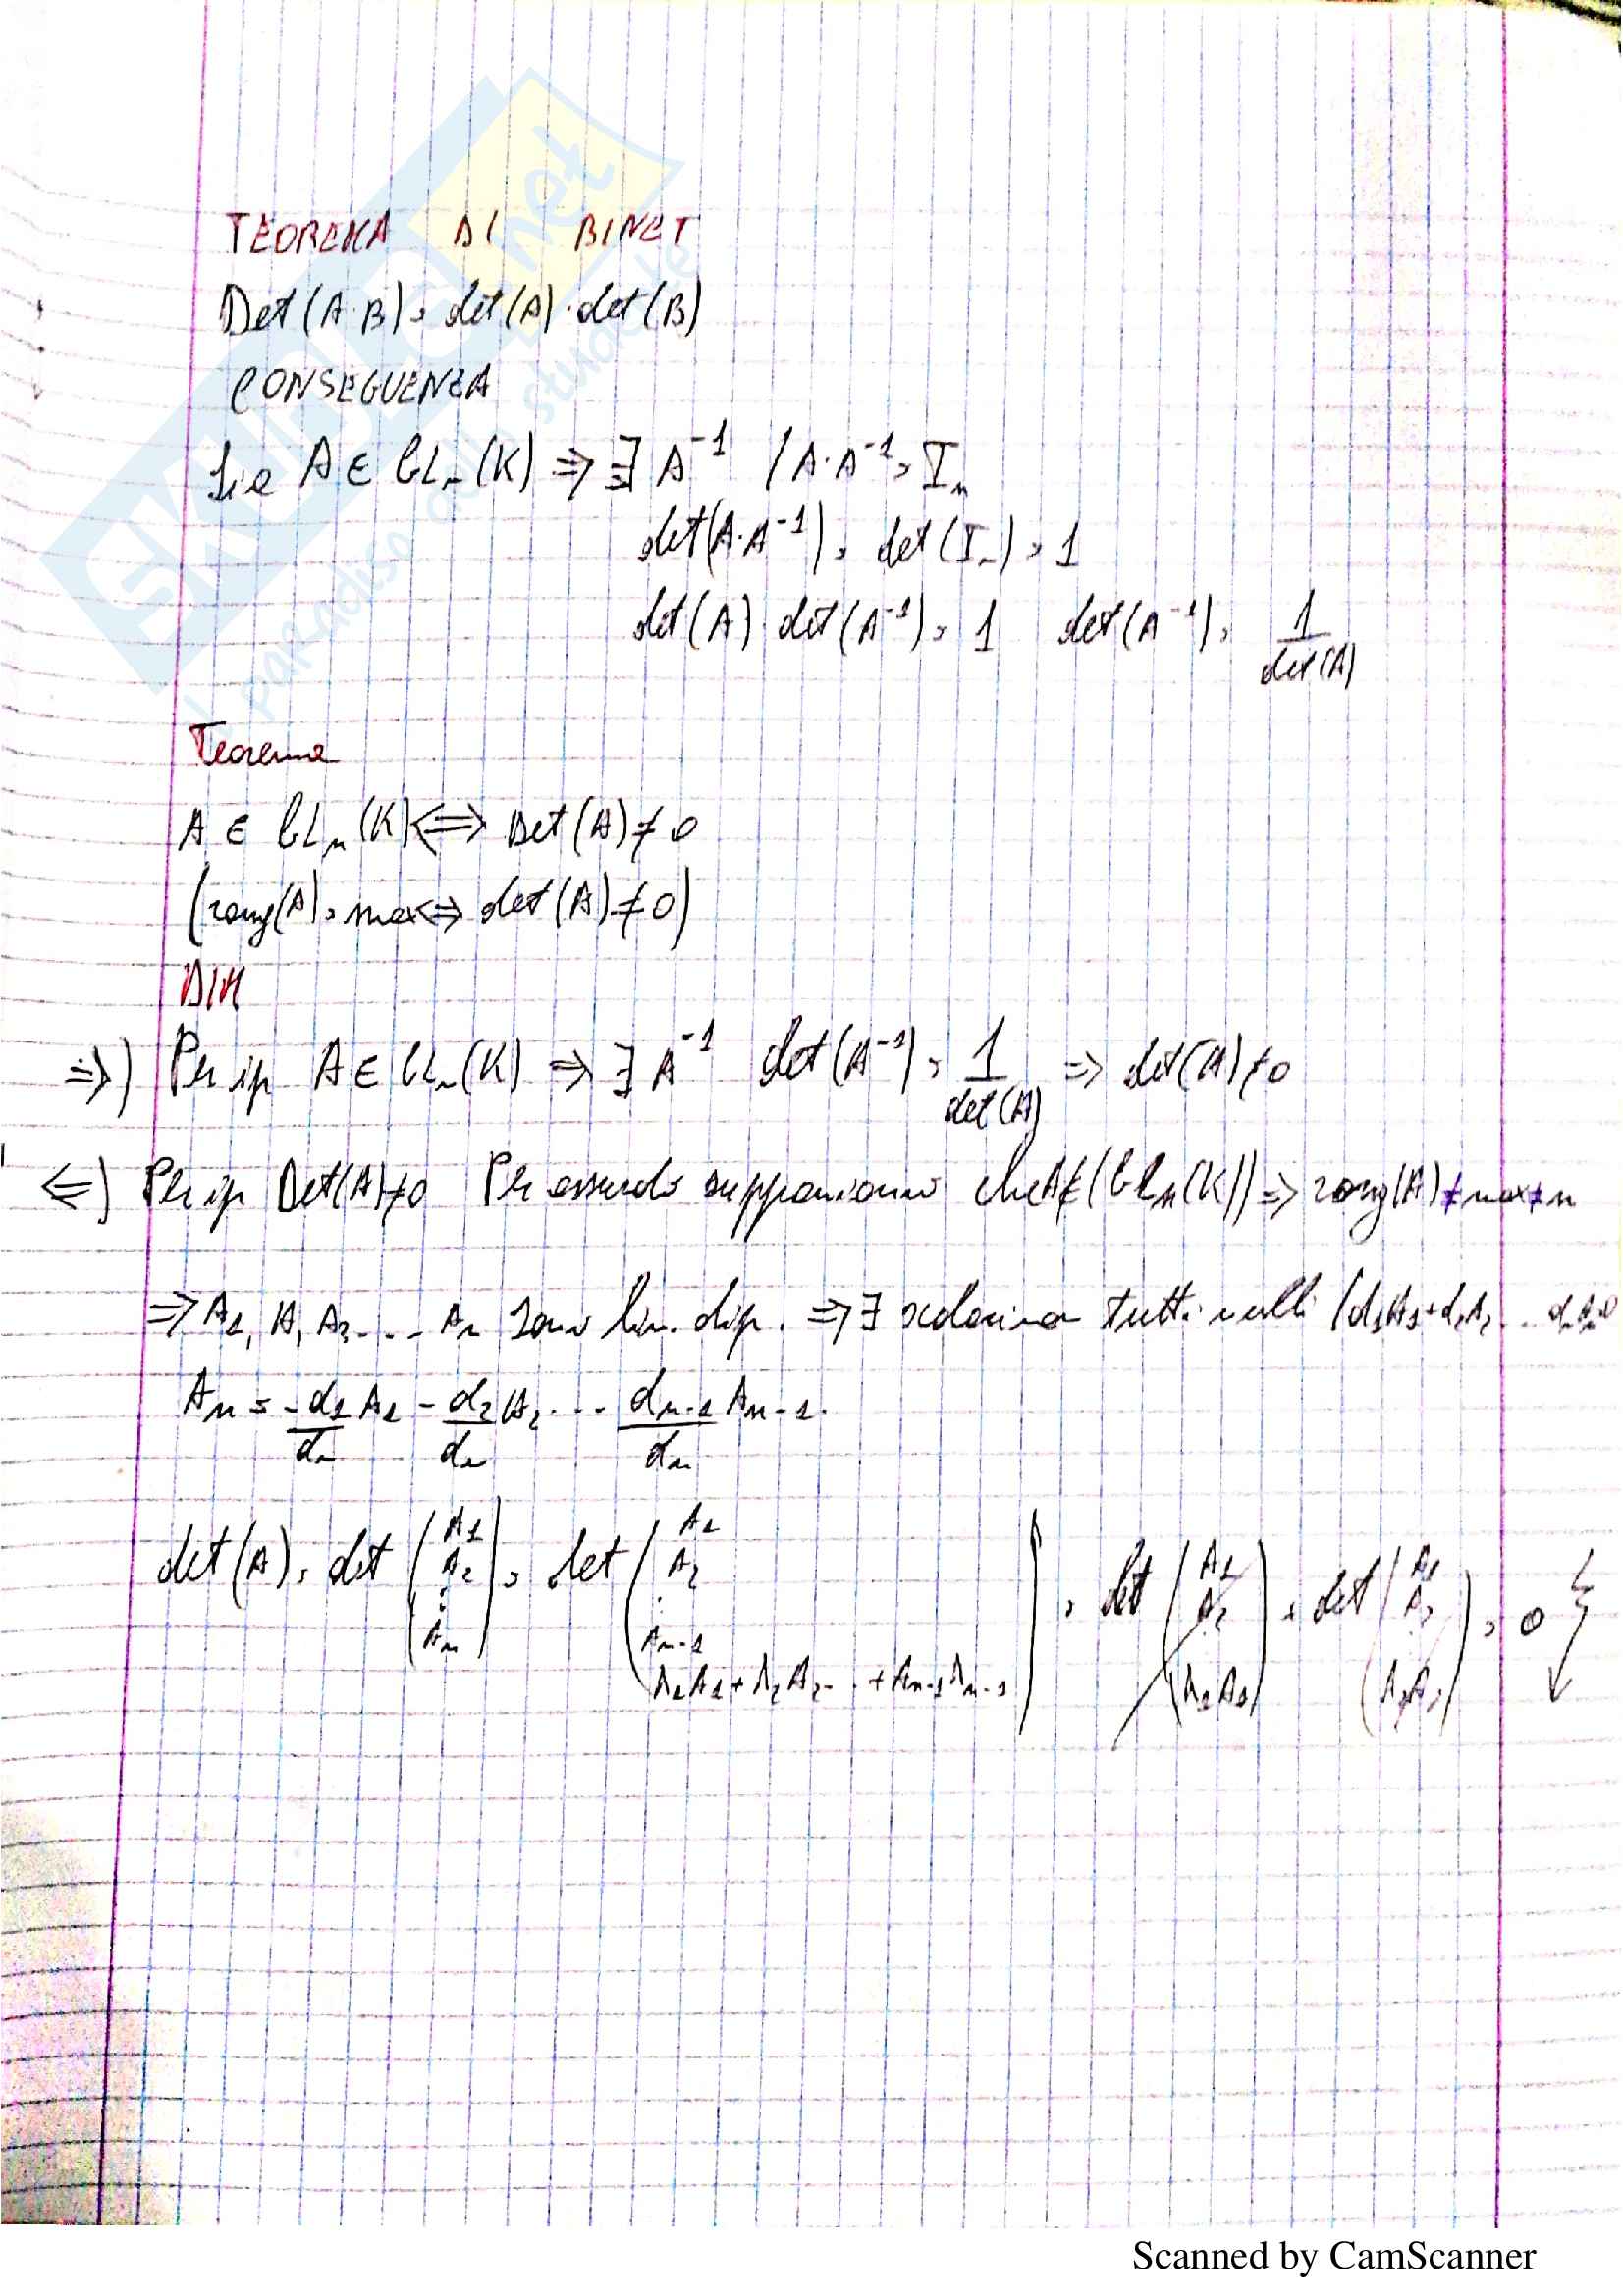 TEOREMA DI BINET
Det(A·B) = det(A)·det(B)
CONSEGUENZA
Sia A ∈ GLn(K) ⇒ ∃ A^-1 / A·A^-1 = In
det(A·A^-1) = det(In) = 1
det(A)·det(A^-1) = 1 det(A^-1) = 1/det(A)
Teorema
A ∈ GLn(K) ⇔ Det(A) ≠ 0
(rang(A) = max ⇔ det(A) ≠ 0)
DIM
⇒) Per ip A ∈ GLn(K) ⇒ ∃ A^-1 det(A^-1) = 1/det(A) ⇒ det(A) ≠ 0
⇐) Per ip Det(A) ≠ 0 Per assurdo supponiamo che A ∉ (GLn(K)) ⇒ rang(A) ≠ max ≠ n
⇒ A1, A2 ... An sono lin. dip. ⇒ ∃ scalari non tutti nulli / d1A1 + d2A2 ... dnAn = 0
An = -d1/dn A1 - d2/dn A2 ... dn-1/dn An-1.
det(A) = det (A1 A2 ⋮ An) = det (A1 A2 ⋮ An-1 λ1A1 + λ2A2 ... + λn-1An-1) = det (A1 A2 ⋮ λ1A1) + det (A1 A2 ⋮ λ2A2) = 0
SKUOLA.net
Il paradiso dello studente
Scanned by CamScanner